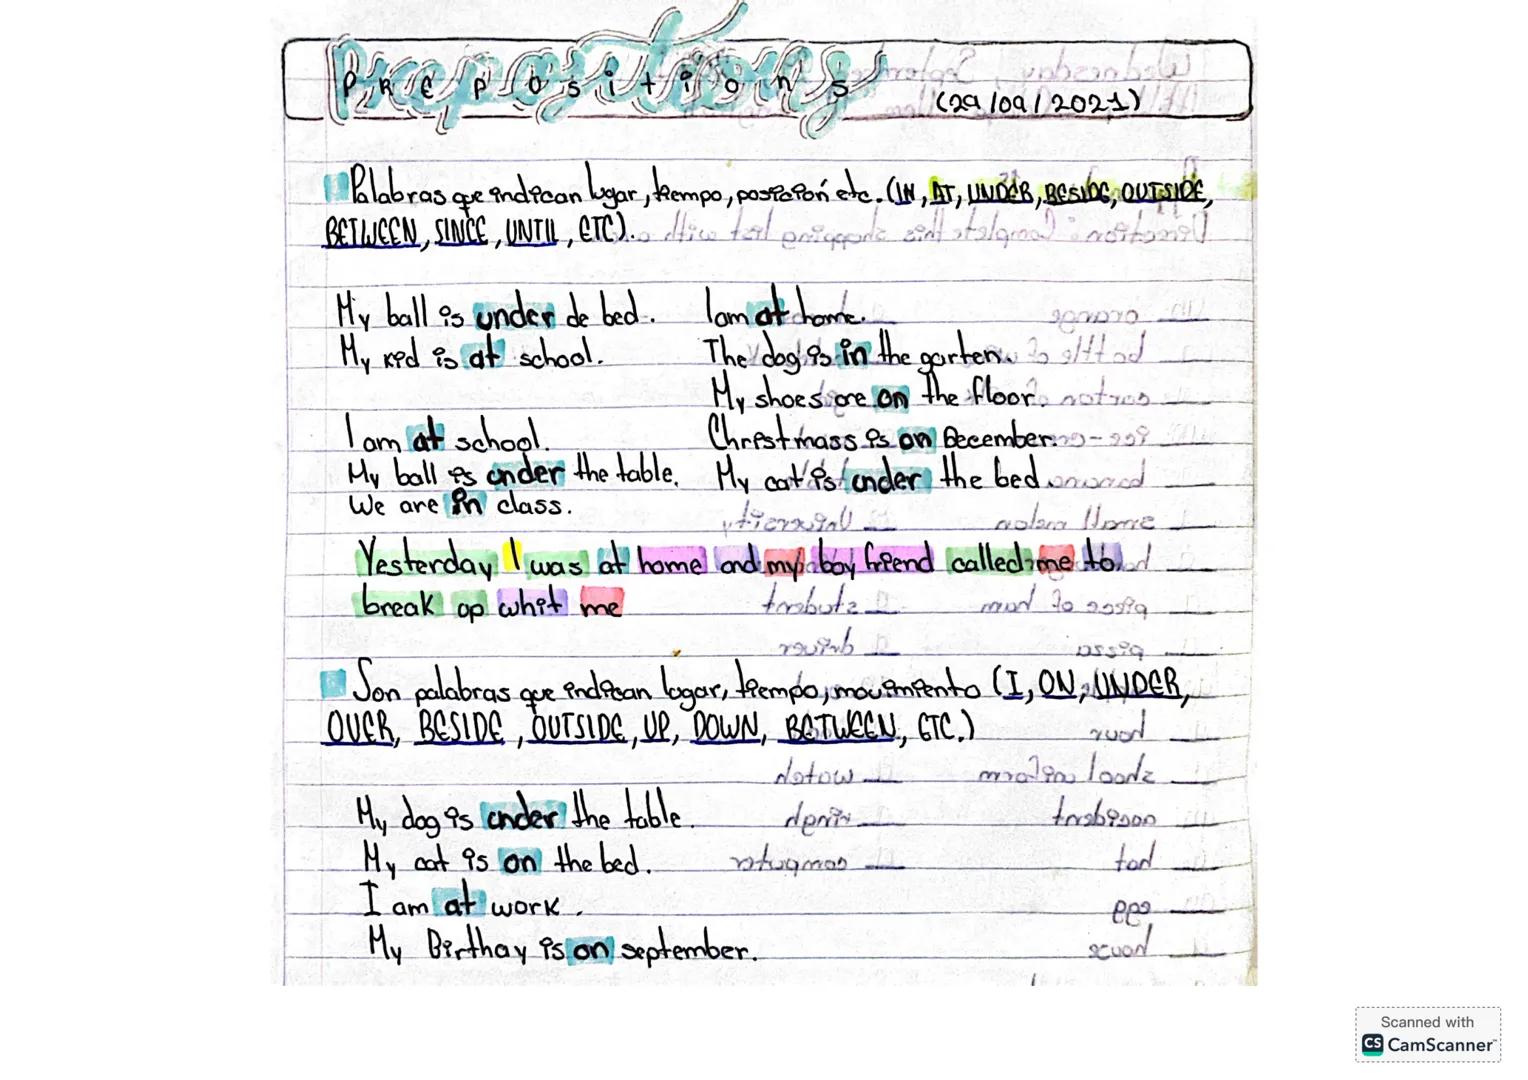 Prepositions
PREPOSitiOnS
(29/09/2021)
Palabras que indican lugar, tiempo, posición etc. (IN, AT, UNDER, BESIDE, OUTSIDE,
BETWEEN, SINCE, UNTIL, ETC).
My ball is under de bed. I am at home.
My kid is at school. The dog is in the garten.
My shoes are on the floor.
I am at school. Christmass is on December.
My ball is under the table. My cat is under the bed
We are in class.
Yesterday I was at home and my boy friend called me to
break op whit me
Son palabras que indican lugar, tiempo, movimiento (I, ON, UNDER,
OVER, BESIDE, OUTSIDE, UP, DOWN, BETWEEN, ETC.)
My dog is under the table.
My cat is on the bed.
I am at work.
My Birthay is on september.
Scanned with
CS CamScanner